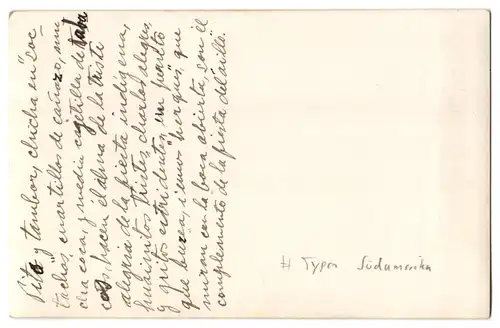 Pito y tambor, chicha en "soc-
taches", cuartillos de cañazo, mu-
cha coca, y media cajetilla de taba
cos, hacen el alma de la triste
alegria de la fiesta indigena,
huainitos tristes, charlas alegres,
y gritos estridentes, un perrito
que busca, i unos "herques", que
miran con la boca abierta, son el
complemento de la fiesta del ailla.
# Typen Südamerika